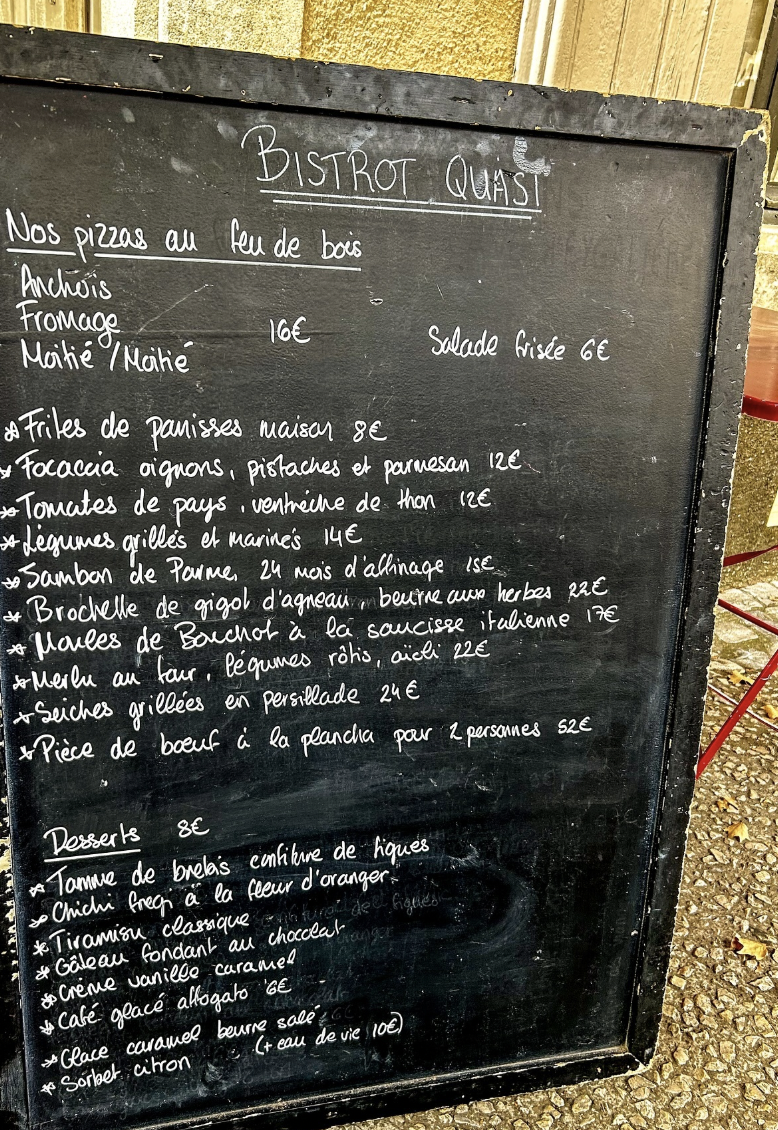 BISTROT QUASI
Nos pizzas au feu de bois
Anchois
Fromage 16€ Salade frisée 6€
Moitié / Moitié
* Frites de panisses maison 8€
* Focaccia oignons, pistaches et parmesan 12€
* Tomates de pays, ventrèche de thon 12€
* Légumes grillés et marinés 14€
* Jambon de Parme, 24 mois d'affinage 15€
* Brochette de gigot d'agneau, beurre aux herbes 22€
* Moules de Bouchot à la saucisse italienne 17€
* Merlu au four, légumes rôtis, aïoli 22€
* Seiches grillées en persillade 24€
* Pièce de bœuf à la plancha pour 2 personnes 52€
Desserts 8€
* Tomme de brebis confiture de figues
* Chichi fregi à la fleur d'oranger
* Tiramisu classique
* Gâteau fondant au chocolat
* Crème vanille caramel
* Café glacé affogato 6€
* Glace caramel beurre salé
* Sorbet citron (+ eau de vie 10€)